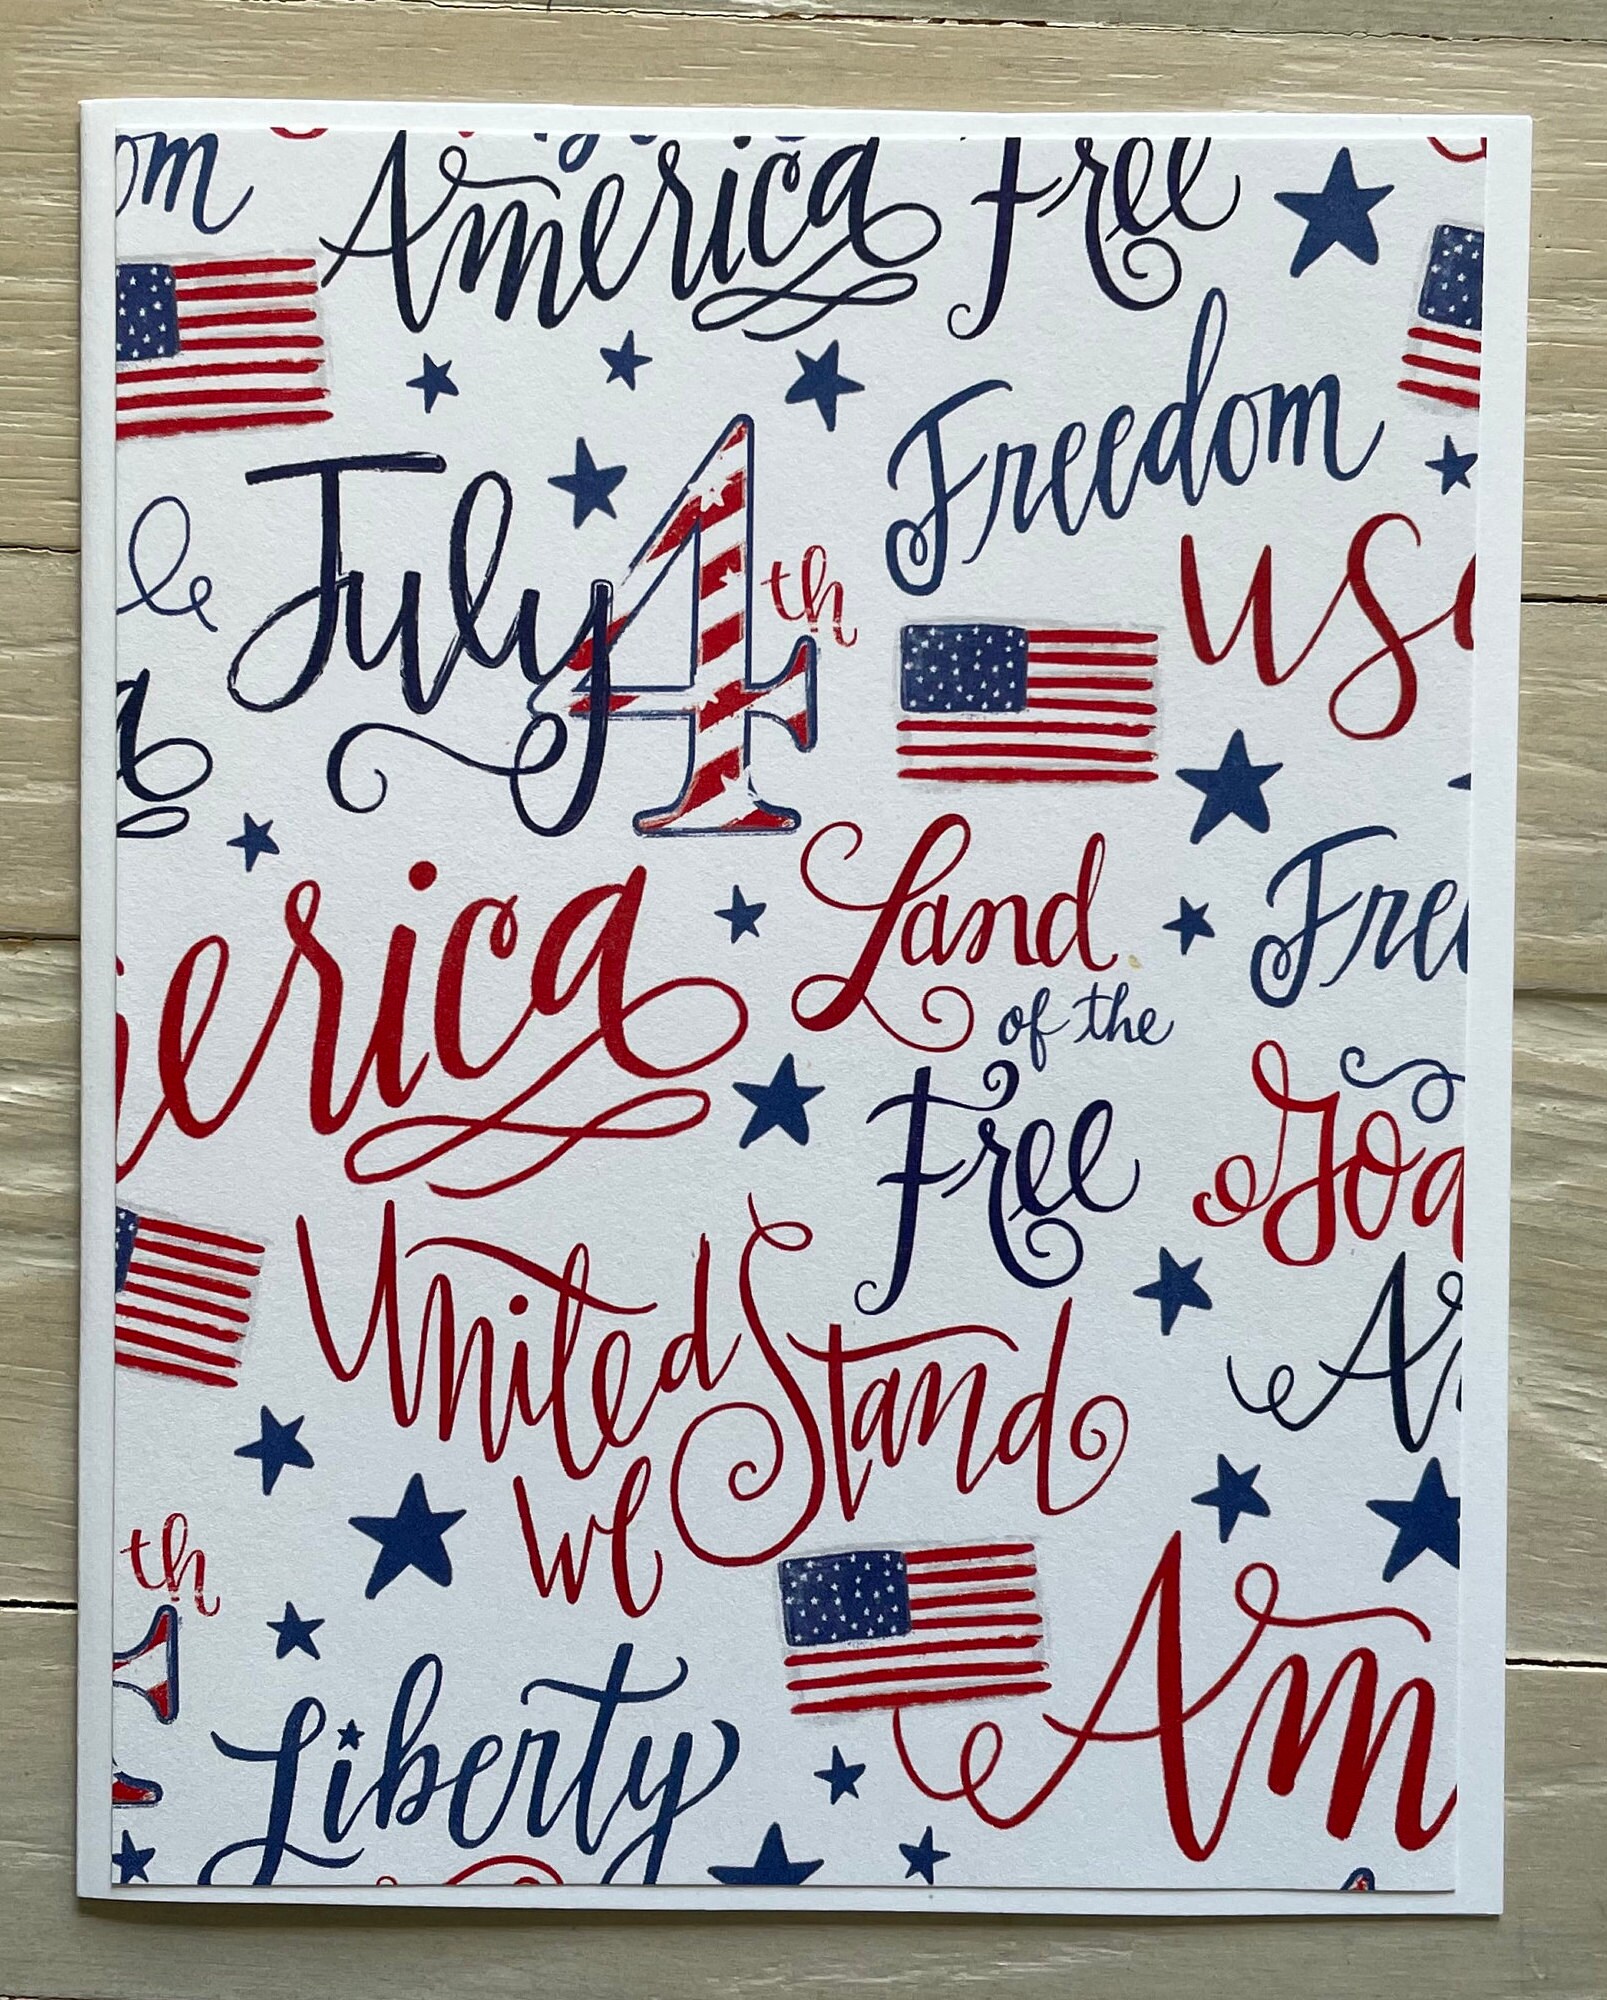 om
America
Free
Freedom
July 4th
USA
le
a
erica
Land
of the
Free
Free
God
United
Stand
we
Am
th
Liberty
Am